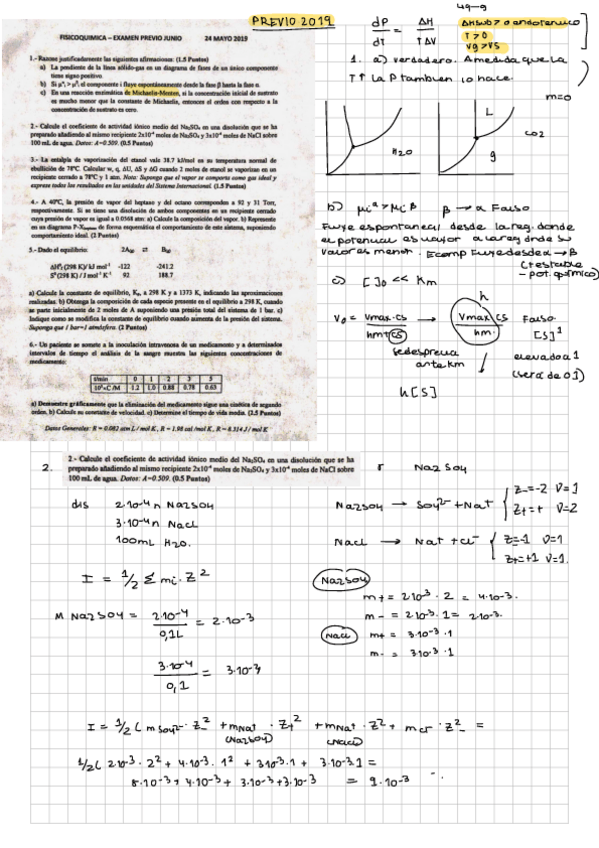 PREVIO 2019
líq-g
dP/dT = ΔH/TΔV
ΔHsub>0 endotérmico
T>0
Vg>Vs
FISICOQUIMICA – EXAMEN PREVIO JUNIO 24 MAYO 2019
1.- Razone justificadamente las siguientes afirmaciones: (1.5 Puntos)
a) La pendiente de la línea sólido-gas en un diagrama de fases de un único componente tiene signo positivo.
b) Si μᵢᵅ > μᵢᵝ, el componente i fluye espontáneamente desde la fase β hasta la fase α.
c) En una reacción enzimática de Michaelis-Menten, si la concentración inicial de sustrato es mucho menor que la constante de Michaelis, entonces el orden con respecto a la concentración de sustrato es cero.
2.- Calcule el coeficiente de actividad iónico medio del Na₂SO₄ en una disolución que se ha preparado añadiendo al mismo recipiente 2x10⁻⁴ moles de Na₂SO₄ y 3x10⁻⁴ moles de NaCl sobre 100 mL de agua. Datos: A=0.509. (0.5 Puntos)
3.- La entalpía de vaporización del etanol vale 38.7 kJ/mol en su temperatura normal de ebullición de 78ºC. Calcular w, q, ΔU, ΔS y ΔG cuando 2 moles de etanol se vaporizan en un recipiente cerrado a 78ºC y 1 atm. Nota: Suponga que el vapor se comporta como gas ideal y exprese todos los resultados en las unidades del Sistema Internacional. (1.5 Puntos)
4.- A 40ºC, la presión de vapor del heptano y del octano corresponden a 92 y 31 Torr, respectivamente. Si se tiene una disolución de ambos componentes en un recipiente cerrado cuya presión de vapor es igual a 0.0568 atm: a) Calcule la composición del vapor. b) Represente en un diagrama P-X de forma esquemática el comportamiento de este sistema, suponiendo comportamiento ideal. (2 Puntos)
5.- Dado el equilibrio: 2A(g) ⇄ B(g)
ΔHºf (298 K)/ kJ mol⁻¹ -122 -241.2
Sº (298 K) / J mol⁻¹ K⁻¹ 92 188.7
a) Calcule la constante de equilibrio, Kp, a 298 K y a 1373 K, indicando las aproximaciones realizadas. b) Obtenga la composición de cada especie presente en el equilibrio a 298 K, cuando se parte inicialmente de 2 moles de A suponiendo una presión total del sistema de 1 bar. c) Indique como se modifica la constante de equilibrio cuando aumenta de la presión del sistema. Suponga que 1 bar=1 atmósfera. (2 Puntos)
6.- Un paciente se somete a la inoculación intravenosa de un medicamento y a determinados intervalos de tiempo el análisis de la sangre muestra las siguientes concentraciones de medicamento:
t/min 0 1 2 3 5
10³×C /M 1.2 1.0 0.88 0.78 0.63
a) Demuestre gráficamente que la eliminación del medicamento sigue una cinética de segundo orden. b) Calcule su constante de velocidad. c) Determine el tiempo de vida media. (2.5 Puntos)
Datos Generales: R = 0.082 atm L / mol K , R = 1.98 cal /mol K , R = 8.314 J / mol K
1. a) verdadero. A medida que la
T↑↑ la P tambien lo hace.
m=0
H₂O
L
g
CO₂
b) μiᵅ > μiᵝ β → α Falso
Fluye espontanea/ desde la reg. donde
el potencial es mayor a la reg donde su
valor es menor.
c) [ ]₀ << Km
V₀ = Vmax·CS / Km+CS → Vmax/Km · CS Falso
k
[S]¹
se desprecia
ante Km
elevado a 1
(será de O.1)
k[S]
2.
2.- Calcule el coeficiente de actividad iónico medio del Na₂SO₄ en una disolución que se ha preparado añadiendo al mismo recipiente 2x10⁻⁴ moles de Na₂SO₄ y 3x10⁻⁴ moles de NaCl sobre 100 mL de agua. Datos: A=0.509. (0.5 Puntos)
γ Na₂SO₄
dis 2·10⁻⁴ n Na₂SO₄
3·10⁻⁴ n NaCl
100mL H₂O.
Na₂SO₄ → SO₄²⁻ + Na⁺ { Z₋=-2 V=1
Z₊=+ V=2
NaCl → Na⁺ + Cl⁻ { Z=-1 V=1
Z₊=+1 V=1.
I = 1/2 Σ mi·Z²
Na₂SO₄
m+ = 2·10⁻³ · 2 = 4·10⁻³.
m- = 2·10⁻³ · 1 = 2·10⁻³.
M Na₂SO₄ = 2·10⁻⁴ / 0,1L = 2·10⁻³
NaCl m+ = 3·10⁻³ · 1
m- = 3·10⁻³ · 1
3·10⁻⁴ / 0,1 = 3·10⁻³
I = 1/2 ( m SO₄²⁻ · Z₋² + m Na⁺ · Z₊² + m Na⁺ · Z² + m Cl⁻ · Z₋² =
(Na₂SO₄) (NaCl)
1/2 ( 2·10⁻³ · 2² + 4·10⁻³ · 1² + 3·10⁻³·1 + 3·10⁻³·1 =
8·10⁻³ + 4·10⁻³ + 3·10⁻³ + 3·10⁻³ = 9·10⁻³